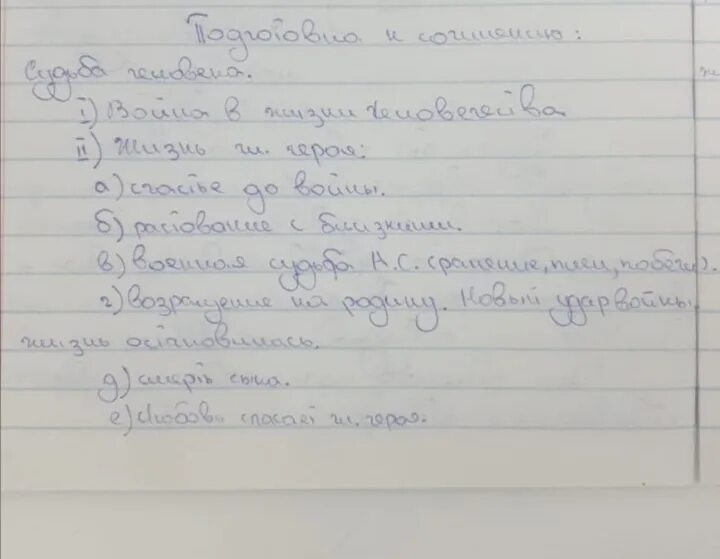 Подготовка к сочинению:
Судьба человека.
I) Война в жизни человечейства
II) Жизнь гл. героя:
а) счастье до войны.
б) растование с близкими.
в) военная судьба А.С. (ранение, плен, побеги).
г) возращение на родину. Новый удар войны,
жизнь остновилась.
д) смерть сына.
е) Любовь спасает гл. героя.